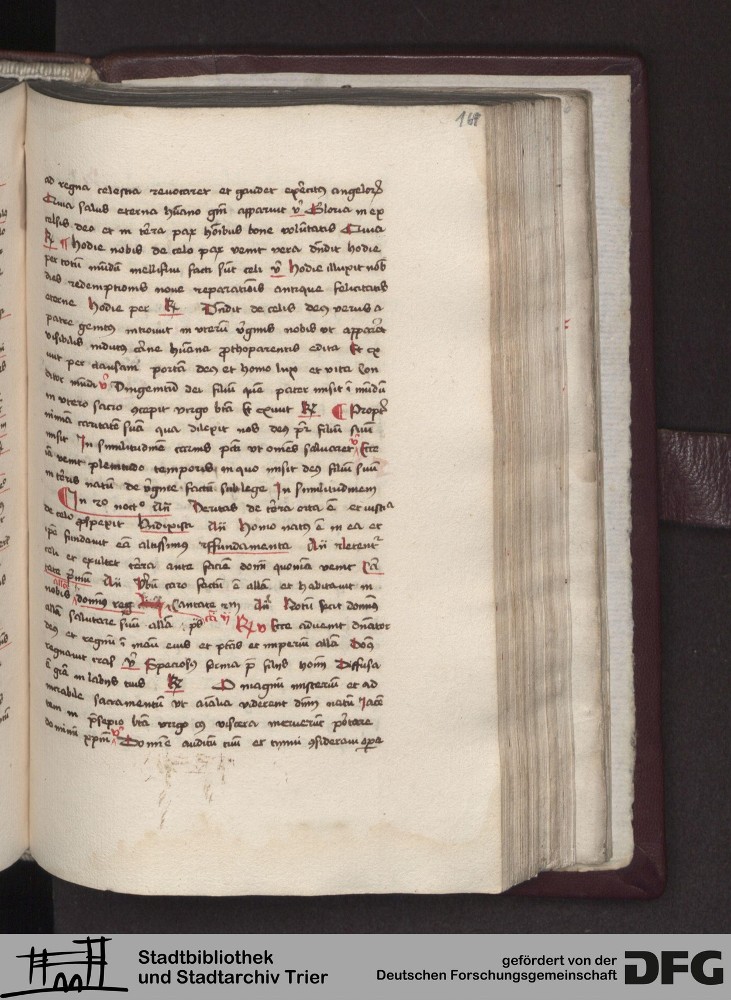 168
ad regna celestia reuocaret et gaudet exercitus angelorum
Quia salus eterna humano generi apparuit V Gloria in ex
celsis deo et in terra pax hominibus bone voluntatis Quia
R Hodie nobis de celo pax vera descendit hodie
per totum mundum melliflui facti sunt celi V Hodie illuxit nobis
dies redemptionis noue reparationis antique felicitatis
eterne Hodie per R Descendit de celis deus verus a
patre genitus introiuit in vterum virginis nobis vt appareret
visibilis indutus carne humana prothoparentis edita Et ex
iuit per clausam portam deus et homo lux et vita Con
ditor mundi V
in vtero sacro concepit virgo beata Et exiuit R Propter
nimiam caritatem suam qua dilexit nos deus pater filium suum
misit In similitudinem carnis peccati vt omnes saluaret V Ecce
iam venit plenitudo temporis in quo misit deus filium suum
in terris natum de virgine factum sub lege In similitudinem
In 3o nocto An Veritas de terra orta est et iusticia
de celo prospexit Benedixisti An Homo natus est in ea et
ipse fundauit eam altissimus Fundamenta An Letentur
celi et exultet terra ante faciem domini quoniam venit Can
tate primum An Verbum caro factum est alla et habitauit in
nobis alla dominus reg Cantate 2m An Notum fecit dominus
alla salutare suum alla ps R V Ecce aduenit dominator
deus et regnum in manu eius et potestas et imperium alla Deus
V Speciosus forma pre filiis hominum Diffusa
est gratia in labiis tuis R O magnum misterium et ad
mirabile sacramentum vt animalia viderent dominum natum Iacen
tem in presepio beata virgo cuius viscera meruerunt portare
dominum xpm V Domine audiui auditum tuum et timui consideraui opera
Stadtbibliothek
und Stadtarchiv Trier
gefördert von der
Deutschen Forschungsgemeinschaft
DFG